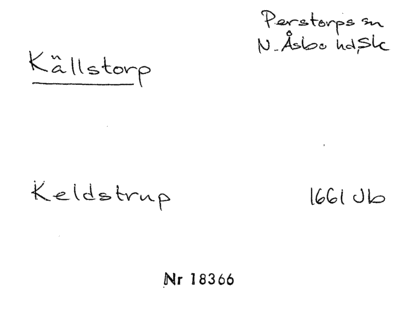 Perstorps sn
N. Åsbo hd, Sk
Källstorp
Keldstrup 1661 Jb
Nr 18366